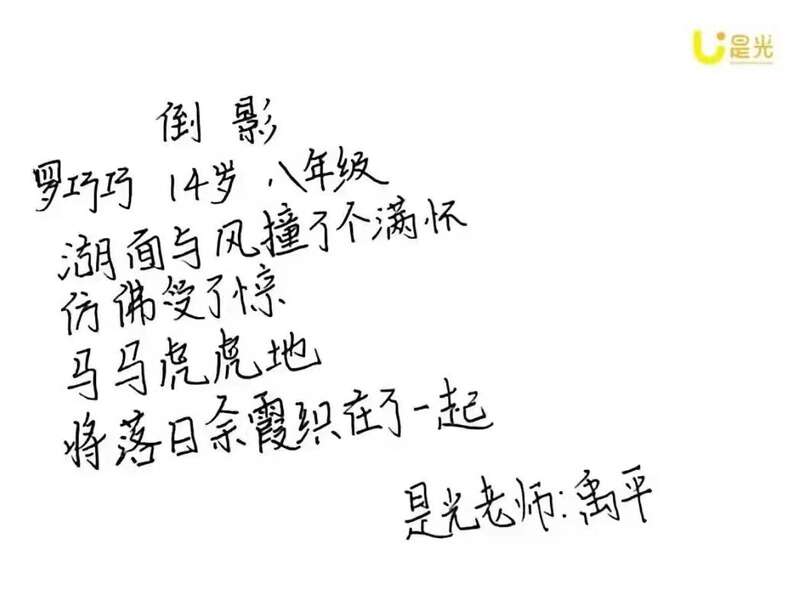 是光
倒影
罗巧巧 14岁 八年级
湖面与风撞了个满怀
仿佛受了惊
马马虎虎地
将落日余霞织在了一起
是光老师:禹平